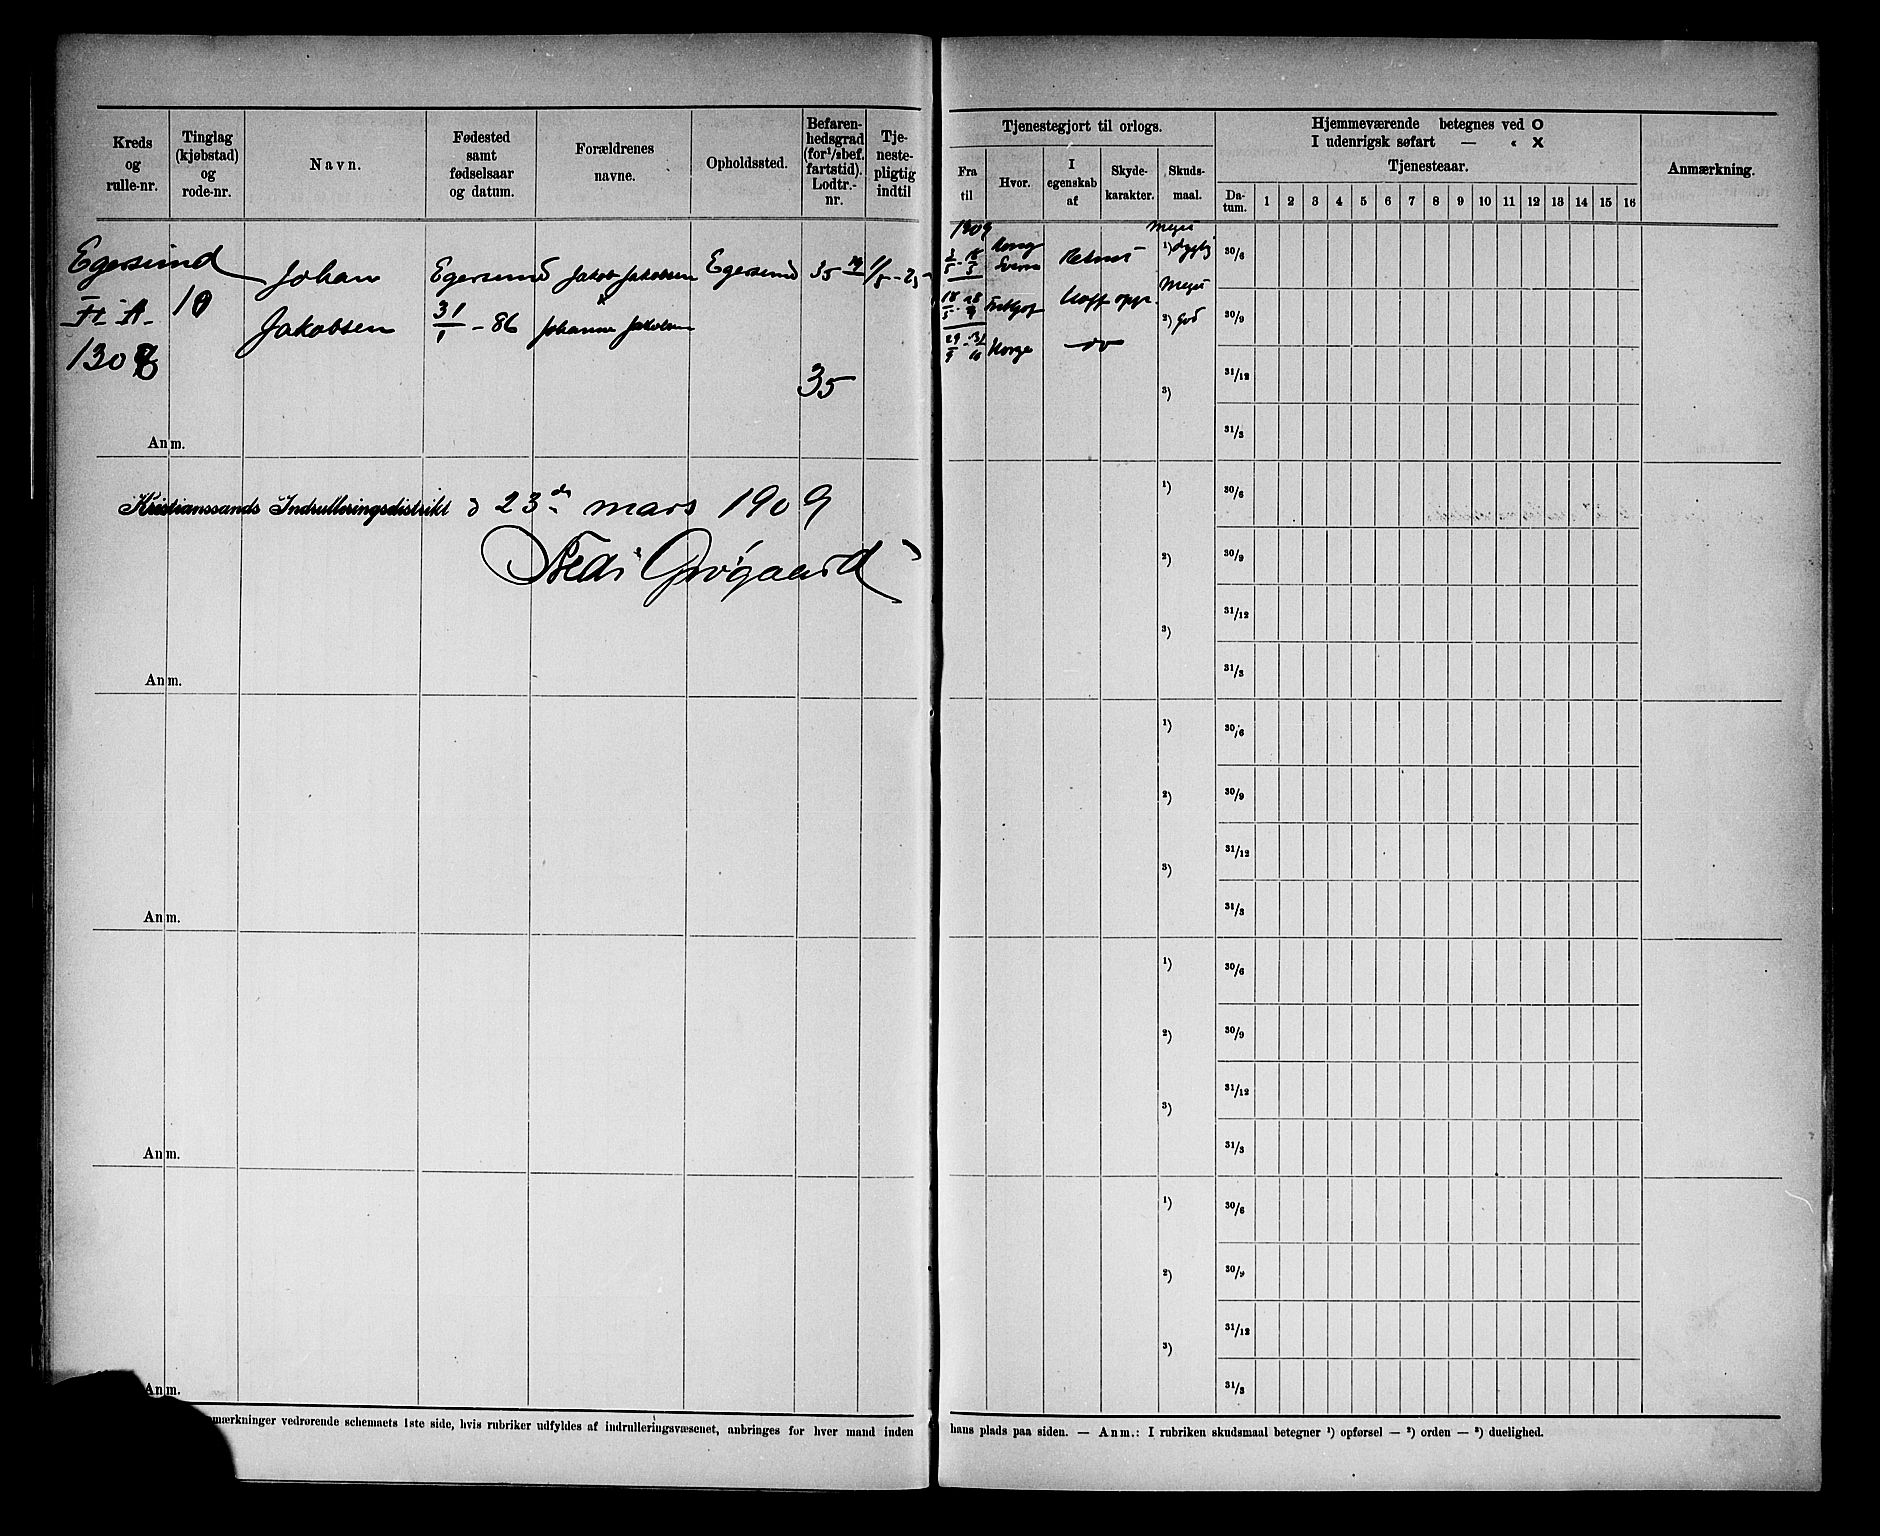 Kreds og rulle-nr.
Tinglag (kjøbstad) og rode-nr.
Navn.
Fødested samt fødselsaar og datum.
Forældrenes navne.
Opholdssted.
Befaren-hedsgrad (for 1/2bef. fartstid). Lodtr.-nr.
Tje-neste-pligtig indtil
Tjenestegjort til orlogs.
Fra til
Hvor.
I egenskab af
Skyde-karakter.
Skuds-maal.
Hjemmeværende betegnes ved O
I udenrigsk søfart — „ X
Tjenesteaar.
Da-tum. 1 2 3 4 5 6 7 8 9 10 11 12 13 14 15 16
Anmærkning.
Egersund
10
Johan
Jakobsen
Egersund
31/1 - 86
Jakob Jakobsen
Johanne Jakobsen
Egersund
35
1909
Meget
1) dygtig
Meget
2) God
Norge
35
3)
30/6
30/9
31/12
31/3
Anm.
Kristianssands Indrulleringsdistrikt d 23de mars 1909
Grøgaard
1)
2)
3)
30/6
30/9
31/12
31/3
Anm.
1)
2)
3)
30/6
30/9
31/12
31/3
Anm.
1)
2)
3)
30/6
30/9
31/12
31/3
Anm.
1)
2)
3)
30/6
30/9
31/12
31/3
Anm.
mærkninger vedrørende schemaets 1ste side, hvis rubriker udfyldes af indrulleringsvæsenet, anbringes for hver mand inden
hans plads paa siden. — Anm.: I rubriken skudsmaal betegner 1) opførsel — 2) orden — 3) duelighed.